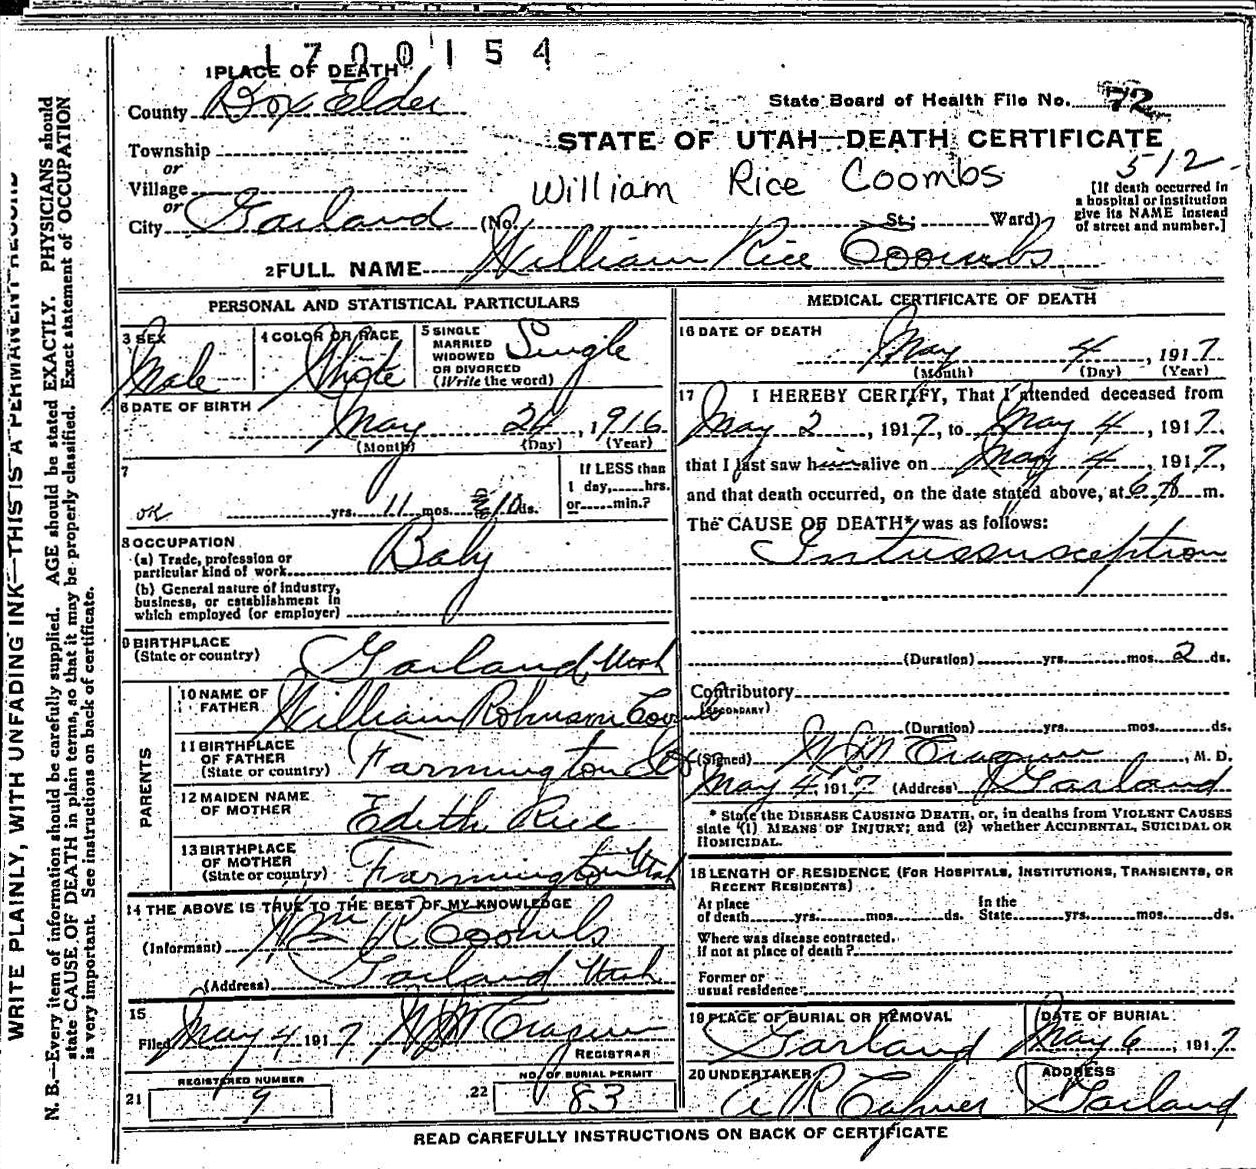 1700154
1 PLACE OF DEATH
County Box Elder
State Board of Health File No. 72
STATE OF UTAH—DEATH CERTIFICATE
Township
or
Village
or
City Garland (No. St.; Ward)
William Rice Coombs
512
[If death occurred in
a hospital or institution
give its NAME instead
of street and number.]
2 FULL NAME William Rice Coombs
PERSONAL AND STATISTICAL PARTICULARS
3 SEX
Male
4 COLOR OR RACE
White
5 SINGLE
MARRIED
WIDOWED
OR DIVORCED
(Write the word)
Single
6 DATE OF BIRTH
May 24, 1916
(Month) (Day) (Year)
7
If LESS than
1 day, hrs.
or min.?
OK yrs. 11 mos. 10 ds.
8 OCCUPATION
(a) Trade, profession or
particular kind of work
Baby
(b) General nature of industry,
business, or establishment in
which employed (or employer)
9 BIRTHPLACE
(State or country)
Garland, Utah
PARENTS
10 NAME OF
FATHER
William Robinson Coombs
11 BIRTHPLACE
OF FATHER
(State or country)
Farmington
12 MAIDEN NAME
OF MOTHER
Edith Rice
13 BIRTHPLACE
OF MOTHER
(State or country)
Farmington Utah
14 THE ABOVE IS TRUE TO THE BEST OF MY KNOWLEDGE
(Informant) Wm R Coombs
(Address) Garland Utah
15
Filed May 4 1917
REGISTRAR
21
REGISTERED NUMBER
9
22
NO. OF BURIAL PERMIT
83
MEDICAL CERTIFICATE OF DEATH
16 DATE OF DEATH
May 4, 1917
(Month) (Day) (Year)
17 I HEREBY CERTIFY, That I attended deceased from
May 2, 1917, to May 4, 1917.
that I last saw him alive on May 4, 1917,
and that death occurred, on the date stated above, at m.
The CAUSE OF DEATH* was as follows:
Intussusception
(Duration) yrs. mos. 2 ds.
Contributory
(SECONDARY)
(Duration) yrs. mos. ds.
(Signed) , M. D.
May 4, 1917 (Address) Garland
* State the DISEASE CAUSING DEATH, or, in deaths from VIOLENT CAUSES
state (1) MEANS OF INJURY; and (2) whether ACCIDENTAL, SUICIDAL OR
HOMICIDAL.
18 LENGTH OF RESIDENCE (FOR HOSPITALS, INSTITUTIONS, TRANSIENTS, OR
RECENT RESIDENTS)
At place
of death yrs. mos. ds.
In the
State yrs. mos. ds.
Where was disease contracted,
if not at place of death?
Former or
usual residence
19 PLACE OF BURIAL OR REMOVAL
Garland
DATE OF BURIAL
May 6, 1917
20 UNDERTAKER
A R
ADDRESS
Garland
READ CAREFULLY INSTRUCTIONS ON BACK OF CERTIFICATE
WRITE PLAINLY, WITH UNFADING INK—THIS IS A PERMANENT RECORD
N. B.—Every item of information should be carefully supplied. AGE should be stated EXACTLY. PHYSICIANS should
state CAUSE OF DEATH in plain terms, so that it may be properly classified. Exact statement of OCCUPATION
is very important. See instructions on back of certificate.